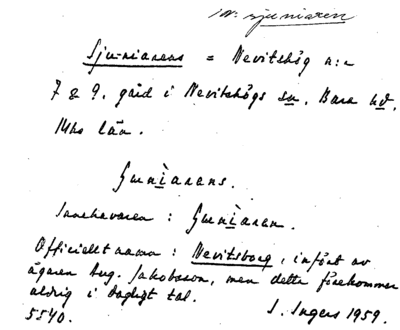 sjuniaren
Sju-niarens = Nevitshög n:r
7 & 9. gård i Nevitshögs sn. Bara hd.
Mhs län.
Innehavaren :
Officiellt namn : Nevitsborg, infört av
ägaren Aug. Jakobsson, men detta förekommer
aldrig i dagligt tal.
5540. I. Ingers 1959.